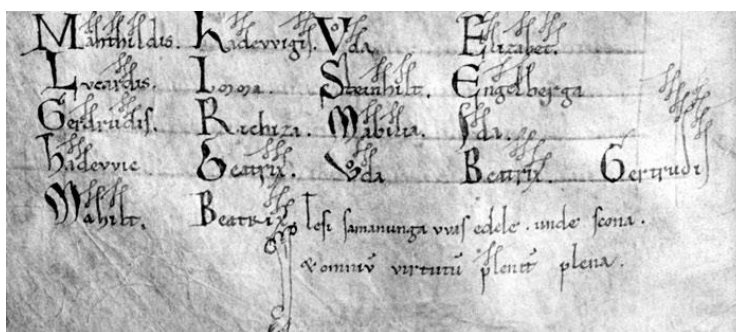 Mahthildis. hadevvigis. Vda. Elizabet.
Lucardis. Imma. Steinhilt. Engelberga
Gerdrudis. Richiza. Mabilia. Ida.
hadevvic Beatrix. Vda Beatrix. Gertrudis
Mahilt. Beatrix
Tesi samanunga vvas edele. unde scona.
& omniū virtutū plenit' plena.